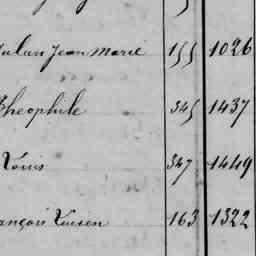 Jean Marie 155 1026
Théophile 345 1437
Louis 347 1449
ançois Lucien 163 1322